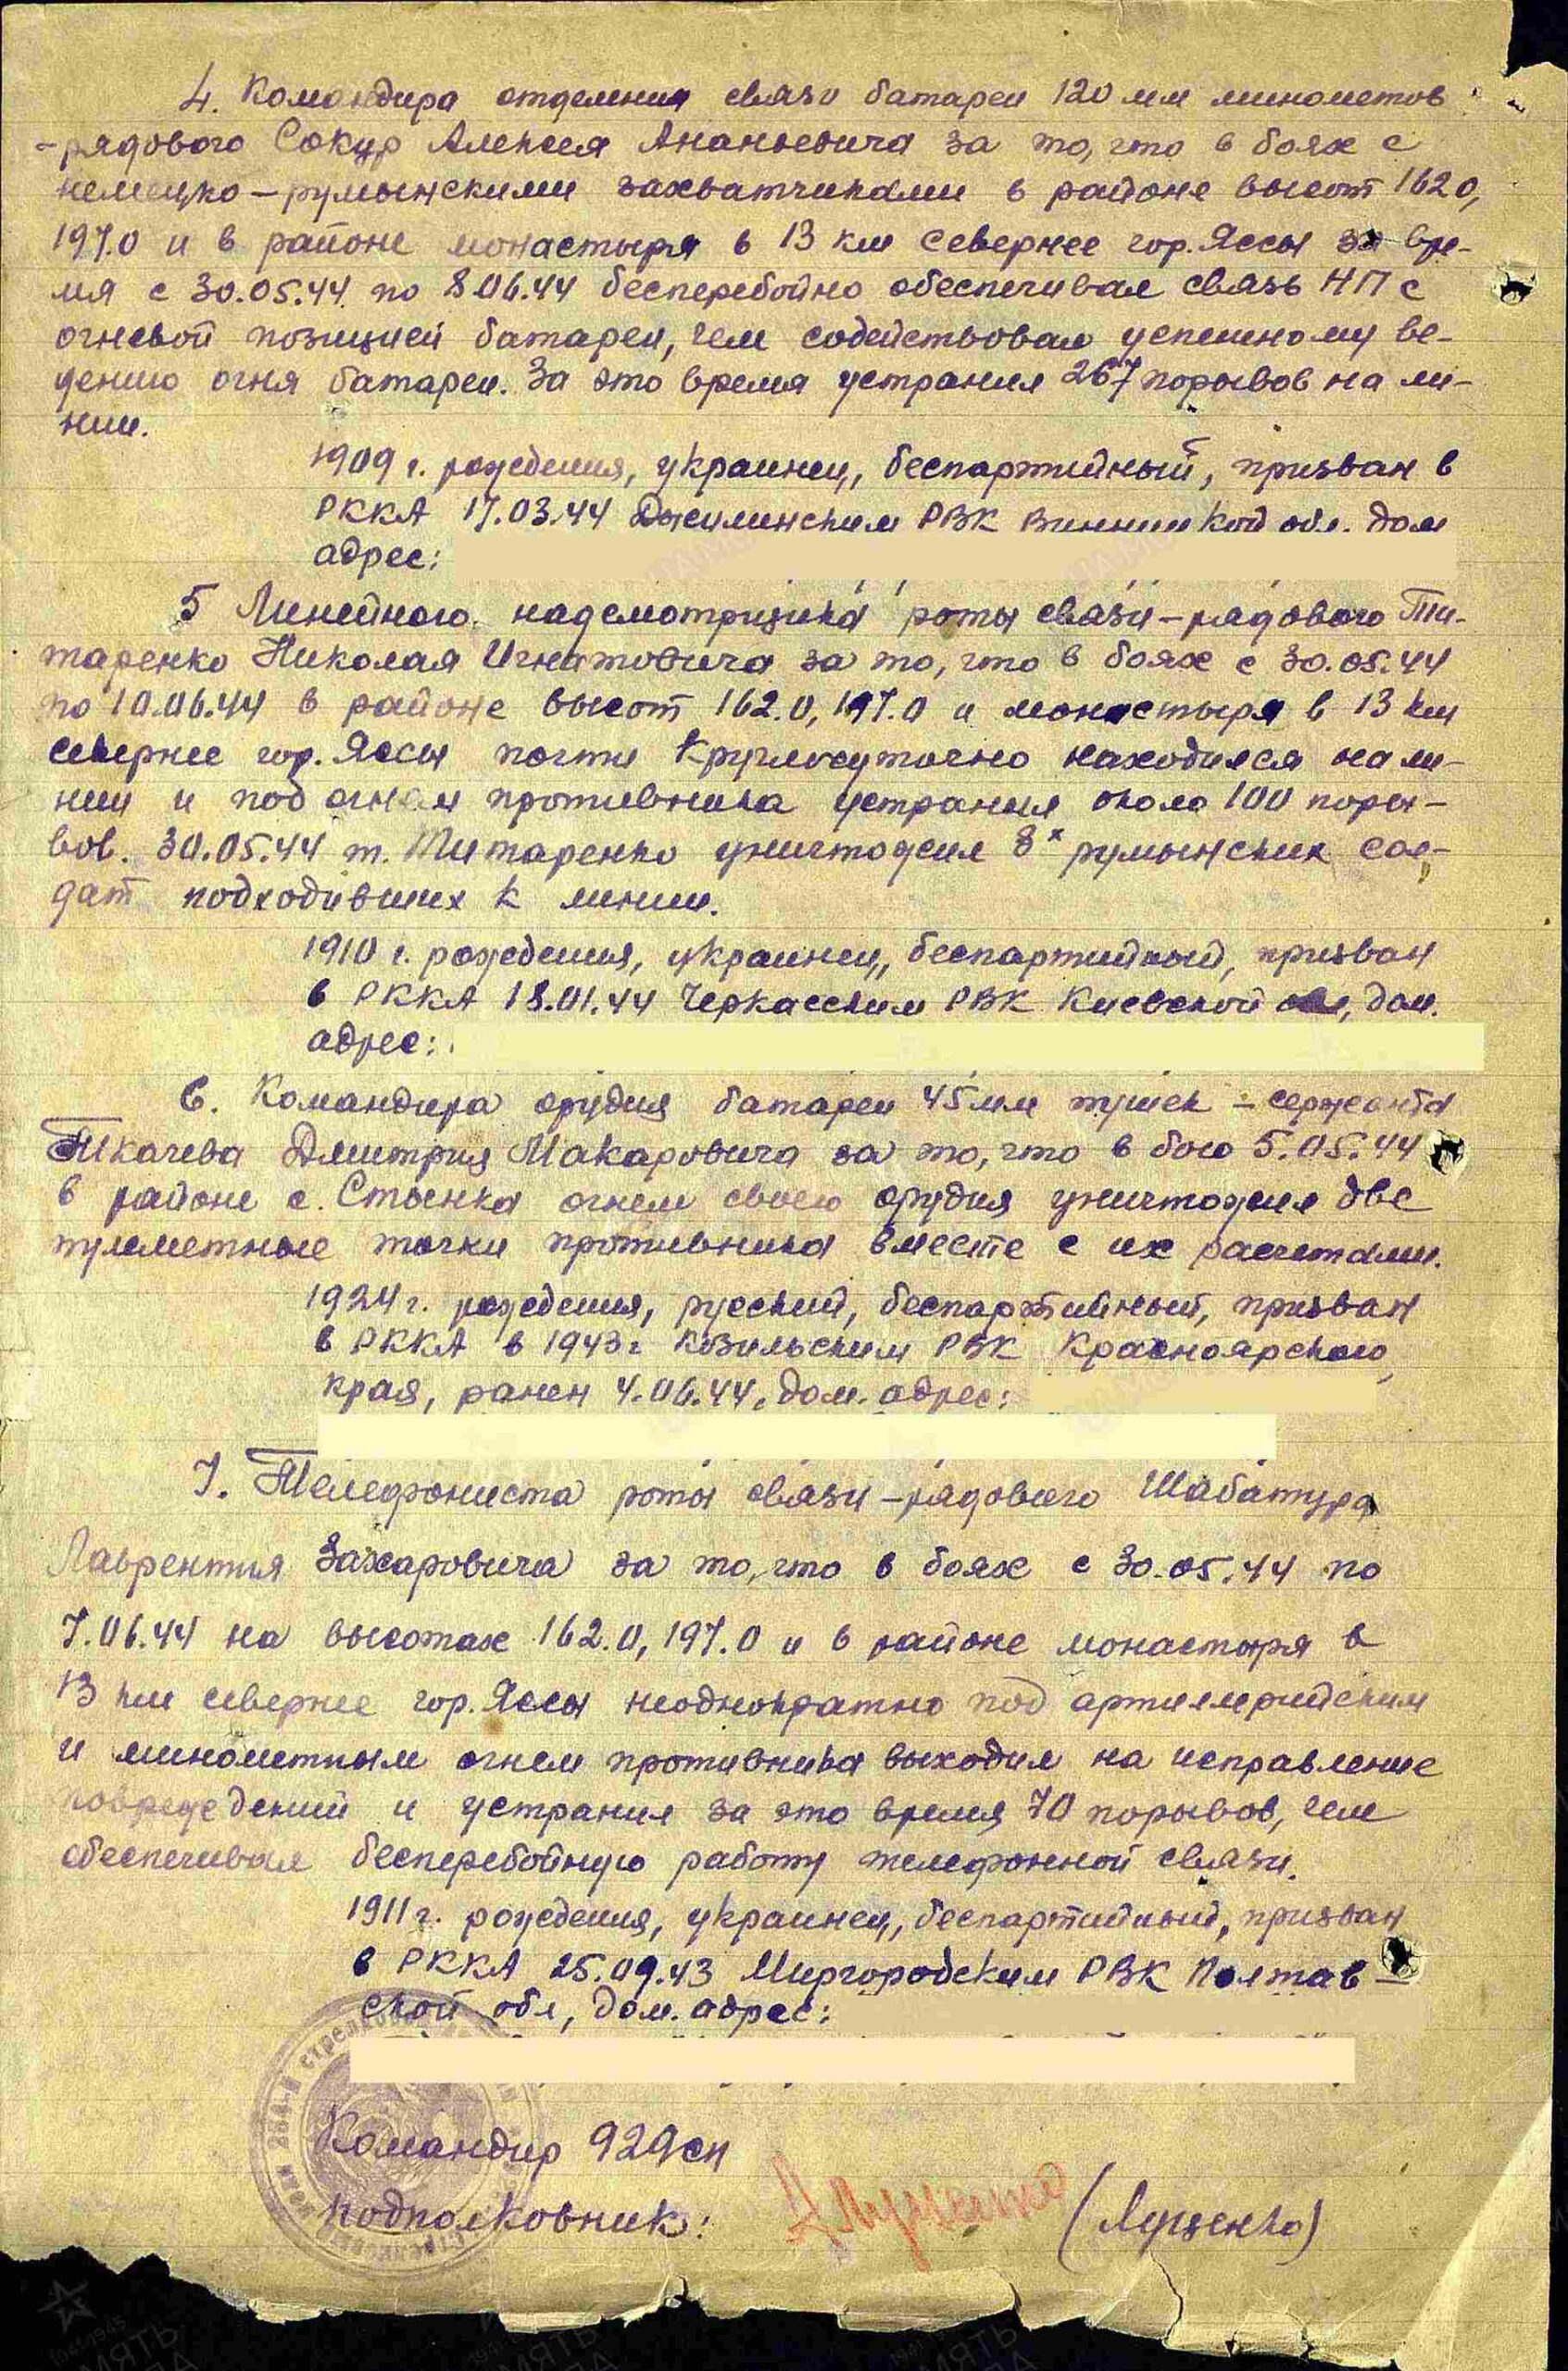 4. Командира отделения связи батареи 120 мм минометов
-рядового Сокур Алексея Ананьевича за то, что в боях с
немецко-румынскими захватчиками в районе высот 162.0,
197.0 и в районе монастыря в 13 км севернее гор. Яссы за вре-
мя с 30.05.44 по 8.06.44 бесперебойно обеспечивал связь НП с
огневой позицией батареи, чем содействовал успешному ве-
дению огня батареи. За это время устранил 267 порывов на ли-
нии.
1909 г. рождения, украинец, беспартийный, призван в
РККА 17.03.44 Джулинским РВК Винницкой обл. дом
адрес:
5 Линейного надсмотрщика роты связи-рядового Ти-
таренко Николая Игнатовича за то, что в боях с 30.05.44
по 10.06.44 в районе высот 162.0, 197.0 и монастыря в 13 км
севернее гор. Яссы почти круглосуточно находился на ли-
нии и под огнем противника устранил около 100 поры-
вов. 30.05.44 т. Титаренко уничтожил 8х румынских сол-
дат подходивших к линии.
1910 г. рождения, украинец, беспартийный, призван
в РККА 18.01.44 Черкасским РВК Киевской обл, дом.
адрес:
6. Командира орудия батареи 45 мм пушек - сержанта
Ткачева Дмитрия Макаровича за то, что в бою 5.05.44
в районе с. Стынка огнем своего орудия уничтожил две
пулеметные точки противника вместе с их расчетами.
1924 г. рождения, русский, беспартийный, призван
в РККА в 1943 г Козульским РВК Красноярского
края, ранен 4.06.44, дом. адрес:
7. Телефониста роты связи-рядового Шабатура
Лаврентия Захаровича за то, что в боях с 30.05.44 по
7.06.44 на высотах 162.0, 197.0 и в районе монастыря в
13 км севернее гор. Яссы неоднократно под артиллерийским
и минометным огнем противника выходил на исправление
повреждений и устранил за это время 70 порывов, чем
обеспечивал бесперебойную работу телефонной связи.
1911 г. рождения, украинец, беспартийный, призван
в РККА 25.09.43 Миргородским РВК Полтав-
ской обл, дом. адрес:
Командир 929 сп
подполковник:
(Лущенко)